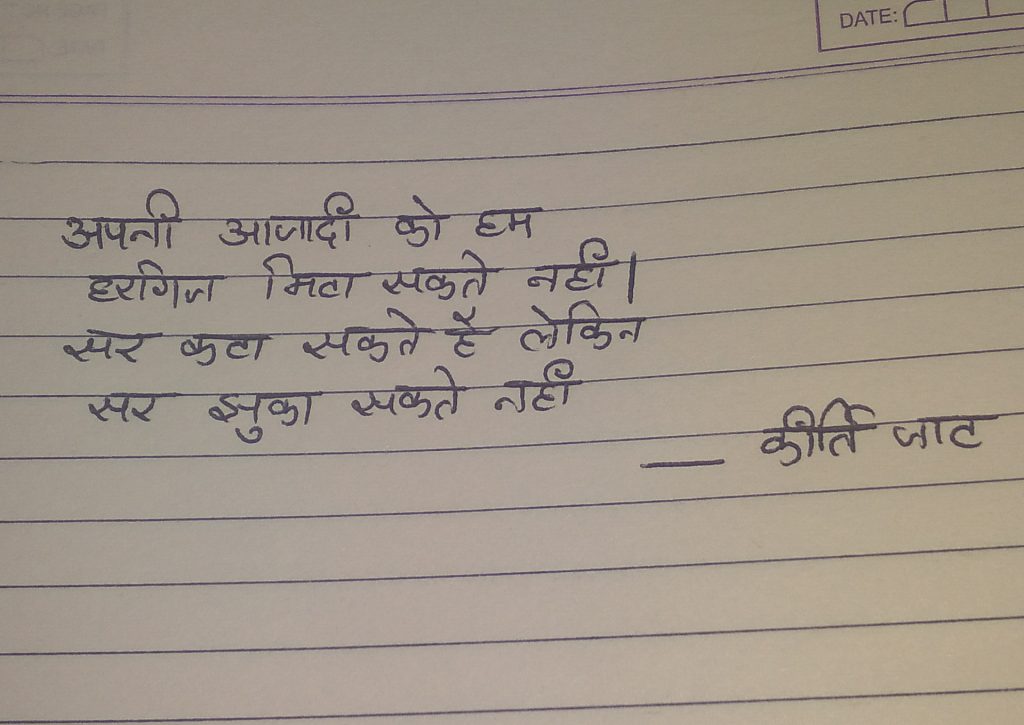 DATE:
अपनी आजादी को हम
हरगिज मिटा सकते नहीं।
सर कटा सकते है लेकिन
सर झुका सकते नहीं
— कीर्ति जाट